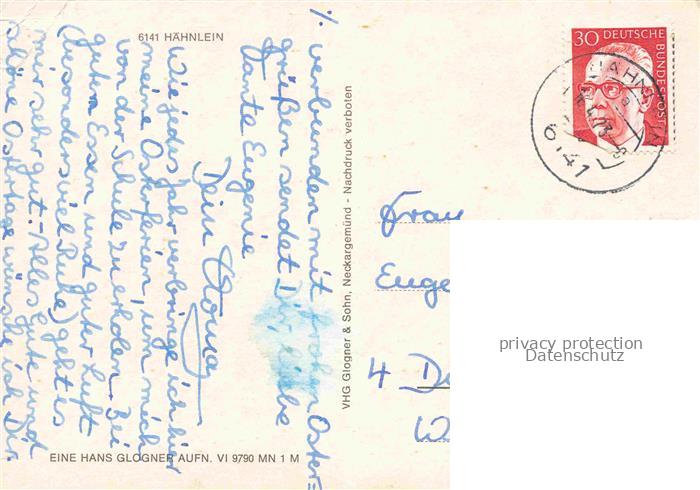 6141 HÄHNLEIN
Wie jedes Jahr verbringe ich hier
meine Osterferien, um mich
von der Schule zu erholen. Bei
gutem Essen und guter Luft
(besonders viel Ruhe) geht es
mir sehr gut. - Alles Gute und
schöne Ostertage wünsche ich Dir
%. verbunden mit frohen Oster=
grüßen sendet Dir, liebe
Tante Eugenie
Dein
EINE HANS GLOGNER AUFN. VI 9790 MN 1 M
VHG Glogner & Sohn, Neckargemünd - Nachdruck verboten
30 DEUTSCHE
BUNDESPOST
6141
Frau
Euge
4 D
W
privacy protection
Datenschutz